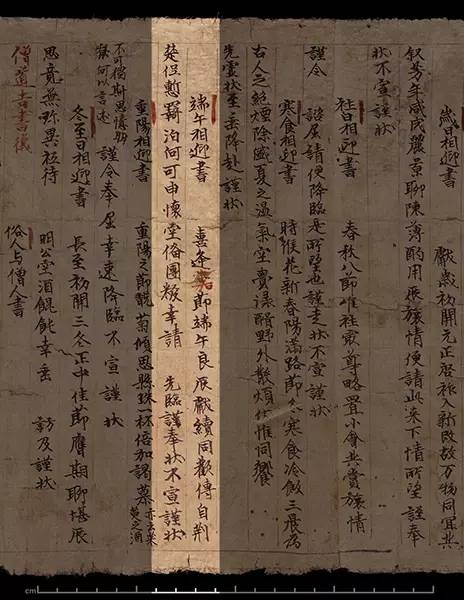 歲日相迎書　獻歲初開元正啓祚入新改故万物同宜共
叙芳年咸成麗景聊陳薄酌用展旅情便請此來下情所望謹奉
狀不宣謹狀
社日相迎書　春秋八節唯社最尊略置小會共賞旅情
謹令　諮屈請便降臨是所望也謹走狀不宣謹狀
寒食相迎書　時候花新春陽滿路節名寒食冷飯三晨為
古人之絕煙除盛夏之溫氣空賫渌醑野外散煩伏惟同饗
先靈狀至垂降赴謹狀
端午相迎書　喜逢嘉節端午良辰獻續同歡傳自荆
楚但慙羈泊何可申懷空俻團粽幸請　先臨謹奉狀不宣謹狀
重陽相迎書　重陽之節翫菊傾思懸珠一杯倍加渴慕
不可獨斯思憶朋寮何以言述　謹令奉屈幸速降臨不宣謹狀
冬至日相迎書　長至初開三冬正中佳節膺期聊堪展
思竟無珍異祗待　明公空酒餛飩幸垂　訪及謹狀
僧道吉書儀　俗人与僧人書
cm